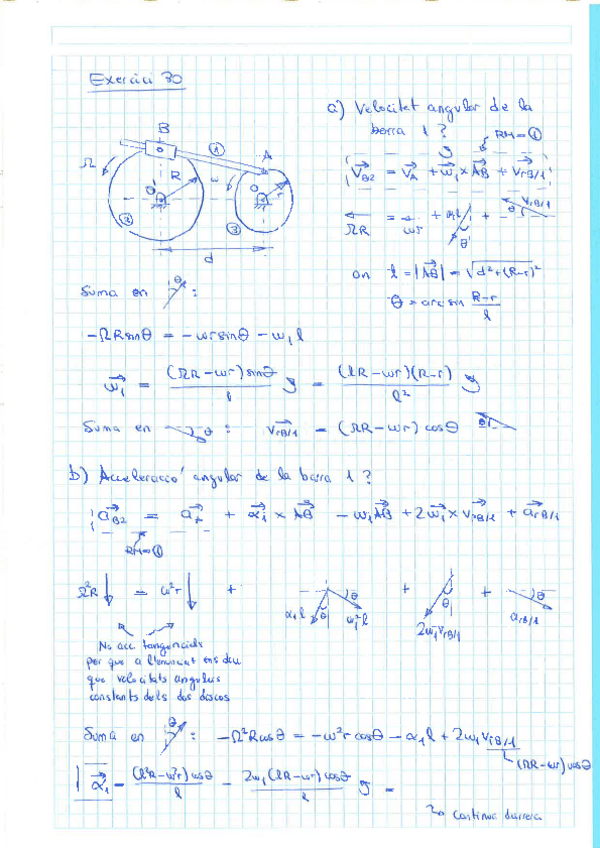 Exercici 30
a) Velocitat angular de la
barra 1 ?
RM=①
B
①
A
Ω
R
ω
O'
O
r
②
③
d
v⃗_B2 = v⃗_A + ω⃗₁ × AB⃗ + v⃗_rB/1
ΩR = ωr + ω₁l + v_rB/1
θ
θ
on l = |AB⃗| = √(d²+(R-r)²)
θ = arc sin (R-r)/l
Suma en θ :
-ΩR sinθ = -ωr sinθ - ω₁ l
ω⃗₁ = (ΩR - ωr) sinθ / l = (ΩR - ωr)(R-r) / l²
Suma en θ : v⃗_rB/1 = (ΩR - ωr) cosθ θ
b) Acceleració angular de la barra 1 ?
a⃗_B2 = a⃗_A + α⃗₁ × AB⃗ - ω₁² AB⃗ + 2ω⃗₁ × v⃗_rB/1 + a⃗_rB/1
RM=①
Ω²R ↓ = ω²r ↓ + α₁l θ θ ω₁²l + θ 2ω₁v_rB/1 + θ a_rB/1
No acc. tangencials
per que a l'enunciat ens diu
que velocitats angulars
constants dels dos discos
Suma en θ : -Ω²R cosθ = -ω²r cosθ - α₁ l + 2ω₁ v_rB/1
(ΩR - ωr) cosθ
α⃗₁ = (Ω²R - ω²r) cosθ / l - 2ω₁(ΩR - ωr) cosθ / l =
continua darrera